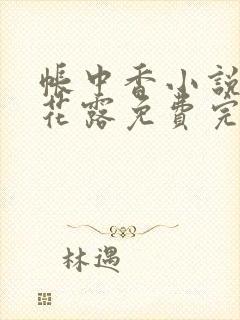 帳中香小說
花露免費完
林遇